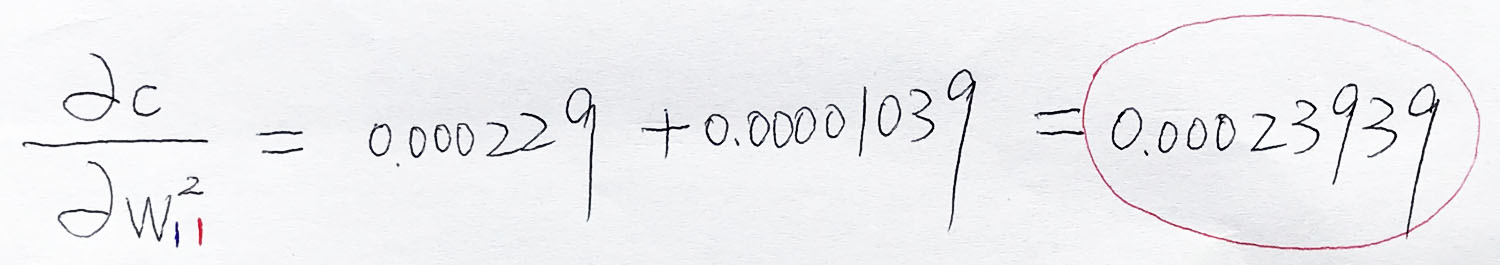 ∂c/∂w²₁₁ = 0.000229 + 0.00001039 = 0.00023939